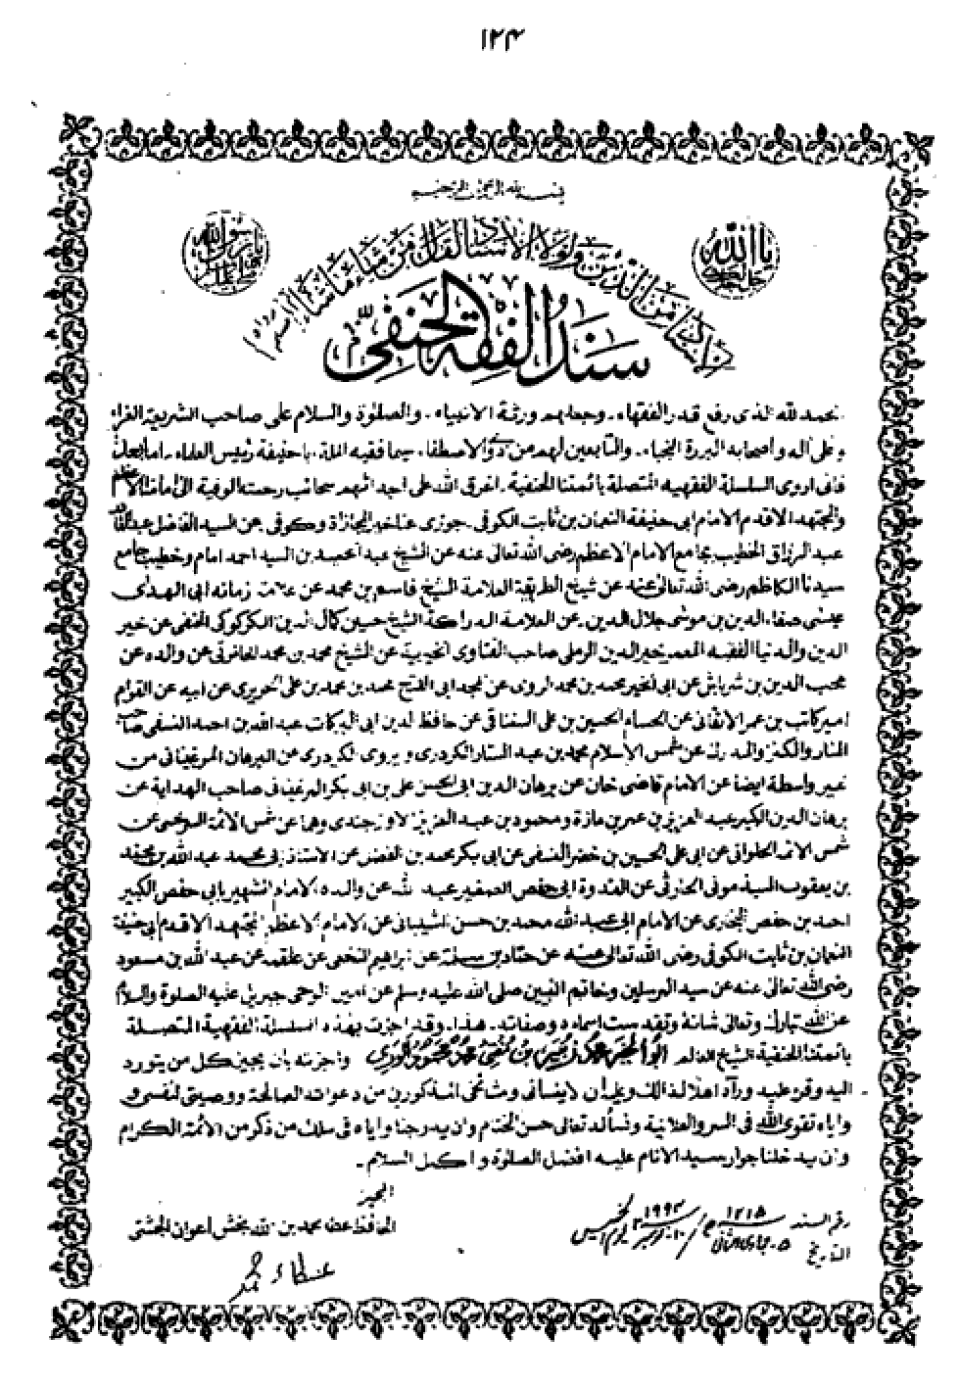 ١٢٣
بسم الله الرحمن الرحيم
الاسناد من الدين ولولا الاسناد لقال من شاء ما شاء رواه مسلم
يا الله جل جلاله
يا رسول الله
سند الفقه الحنفي
نحمد لله الذى رفع قدر الفقهاء۔ وجعلهم ورثة الانبياء۔ والصلوة والسلام على صاحب الشريعة الغراء
وعلى آله واصحابه البررة النجباء۔ والتابعين لهم من ذوى الاصطفاء۔ سيما فقيه الملة۔ ابا حنيفة رئيس العلماء۔ اما بعد
فانى اروى السلسلة الفقهيه المتصلة بائمتنا الحنفية۔ اغرق الله على اجداثهم سحائب رحمته الوفية الى امامنا الاعظم
والمجتهد الاقدم الامام ابى حنيفة النعمان بن ثابت الكوفى۔ جوزى عنا خير المجازاة وكوفى عن السيد الفاضل عبد القادر
عبد الرزاق الخطيب بجامع الامام الاعظم رضى الله تعالى عنه عن الشيخ عبد الحميد بن السيد احمد امام وخطيب جامع
سيدنا الكاظم رضى الله تعالى عنه عن شيخ الطريقة العلامة الشيخ قاسم بن محمد عن علامة زمانه ابى الهدى
عيسى صفاء الدين بن موسى جلال الدين۔ عن العلامة الدراكة الشيخ حسين كمال الدين الكركوكى الحنفى عن خير
الدين والدنيا الفقيه المعمر خير الدين الرملى صاحب الفتاوى الخيرية عن الشيخ محمد بن محمد الحانوتى عن والده عن
محب الدين بن شرباش عن ابى الخير محمد بن محمد الرومى عن مجد ابى الفتح محمد بن محمد بن على الحريرى عن ابيه عن القوام
امير كاتب بن عمر الاتقانى عن الحسام الحسين بن على السغناقى عن حافظ الدين ابى البركات عبد الله بن احمد النسفى صاحب
المنار والكنز والمدارك عن شمس الإسلام محمد بن عبد الستار الكردرى ويروى الكردرى عن البرهان المرغينانى من
غير واسطة ايضا عن الامام قاضى خان عن برهان الدين ابى الحسن على بن ابى بكر المرغينانى صاحب الهداية عن
برهان الدين الكبير عبد العزيز بن عمر بن مازة ومحمود بن عبد العزيز الاوزجندى وهما عن شمس الائمة السرخسى عن
شمس الائمه الحلوانى عن ابى على الحسين بن خضر النسفى عن ابى بكر محمد بن الفضل عن الاستاذ ابى محمد عبد الله بن محمد
بن يعقوب السيذمونى الحارثى عن القدوة ابى حفص الصغير عبد الله عن والده الامام الشهير بابى حفص الكبير
احمد بن حفص البخارى عن الامام ابى عبد الله محمد بن حسن الشيبانى عن الامام الاعظم المجتهد الاقدم ابى حنيفة
النعمان بن ثابت الكوفى رضى الله تعالى عنه عن حماد بن سلمة عن ابراهيم النخعى عن علقمه عن عبد الله بن مسعود
رضى الله تعالى عنه عن سيد المرسلين وخاتم النبيين صلى الله عليه وسلم عن امين الوحى جبريل عليه الصلوة والسلام
عن الله تبارك وتعالى شانه وتقدست اسماءه وصفاته۔ هذا۔ وقد اجزت بهذه السلسلة الفقهية المتصلة
بائمتنا الحنفية الشيخ العالم ابو الخير محمد زبير بن مفتى محمد محمود الورى واجزته بان يجيز كل من يتورد
اليه وقرء عليه ورآه اهلا لذالك ويلمان لا ينسانى ومشائخى المذكورين من دعواته الصالحة ووصيتى لنفسى و
واياه تقوى الله فى السر والعلانية ونسأله تعالى حسن الختام وان يدرجنا واياه فى سلك من ذكر من الائمة الكرام
وان يدخلنا جوار سيد الانام عليه افضل الصلوة واكمل السلام۔
المجيز
الحافظ عطا محمد بن الله بخش اعوان الچشتى
عطاء محمد
رقم السند ١٢١٥
التاريخ ٥۔ جمادى الثانى ١٠ نومبر ١٩٩٣ء يوم الخميس